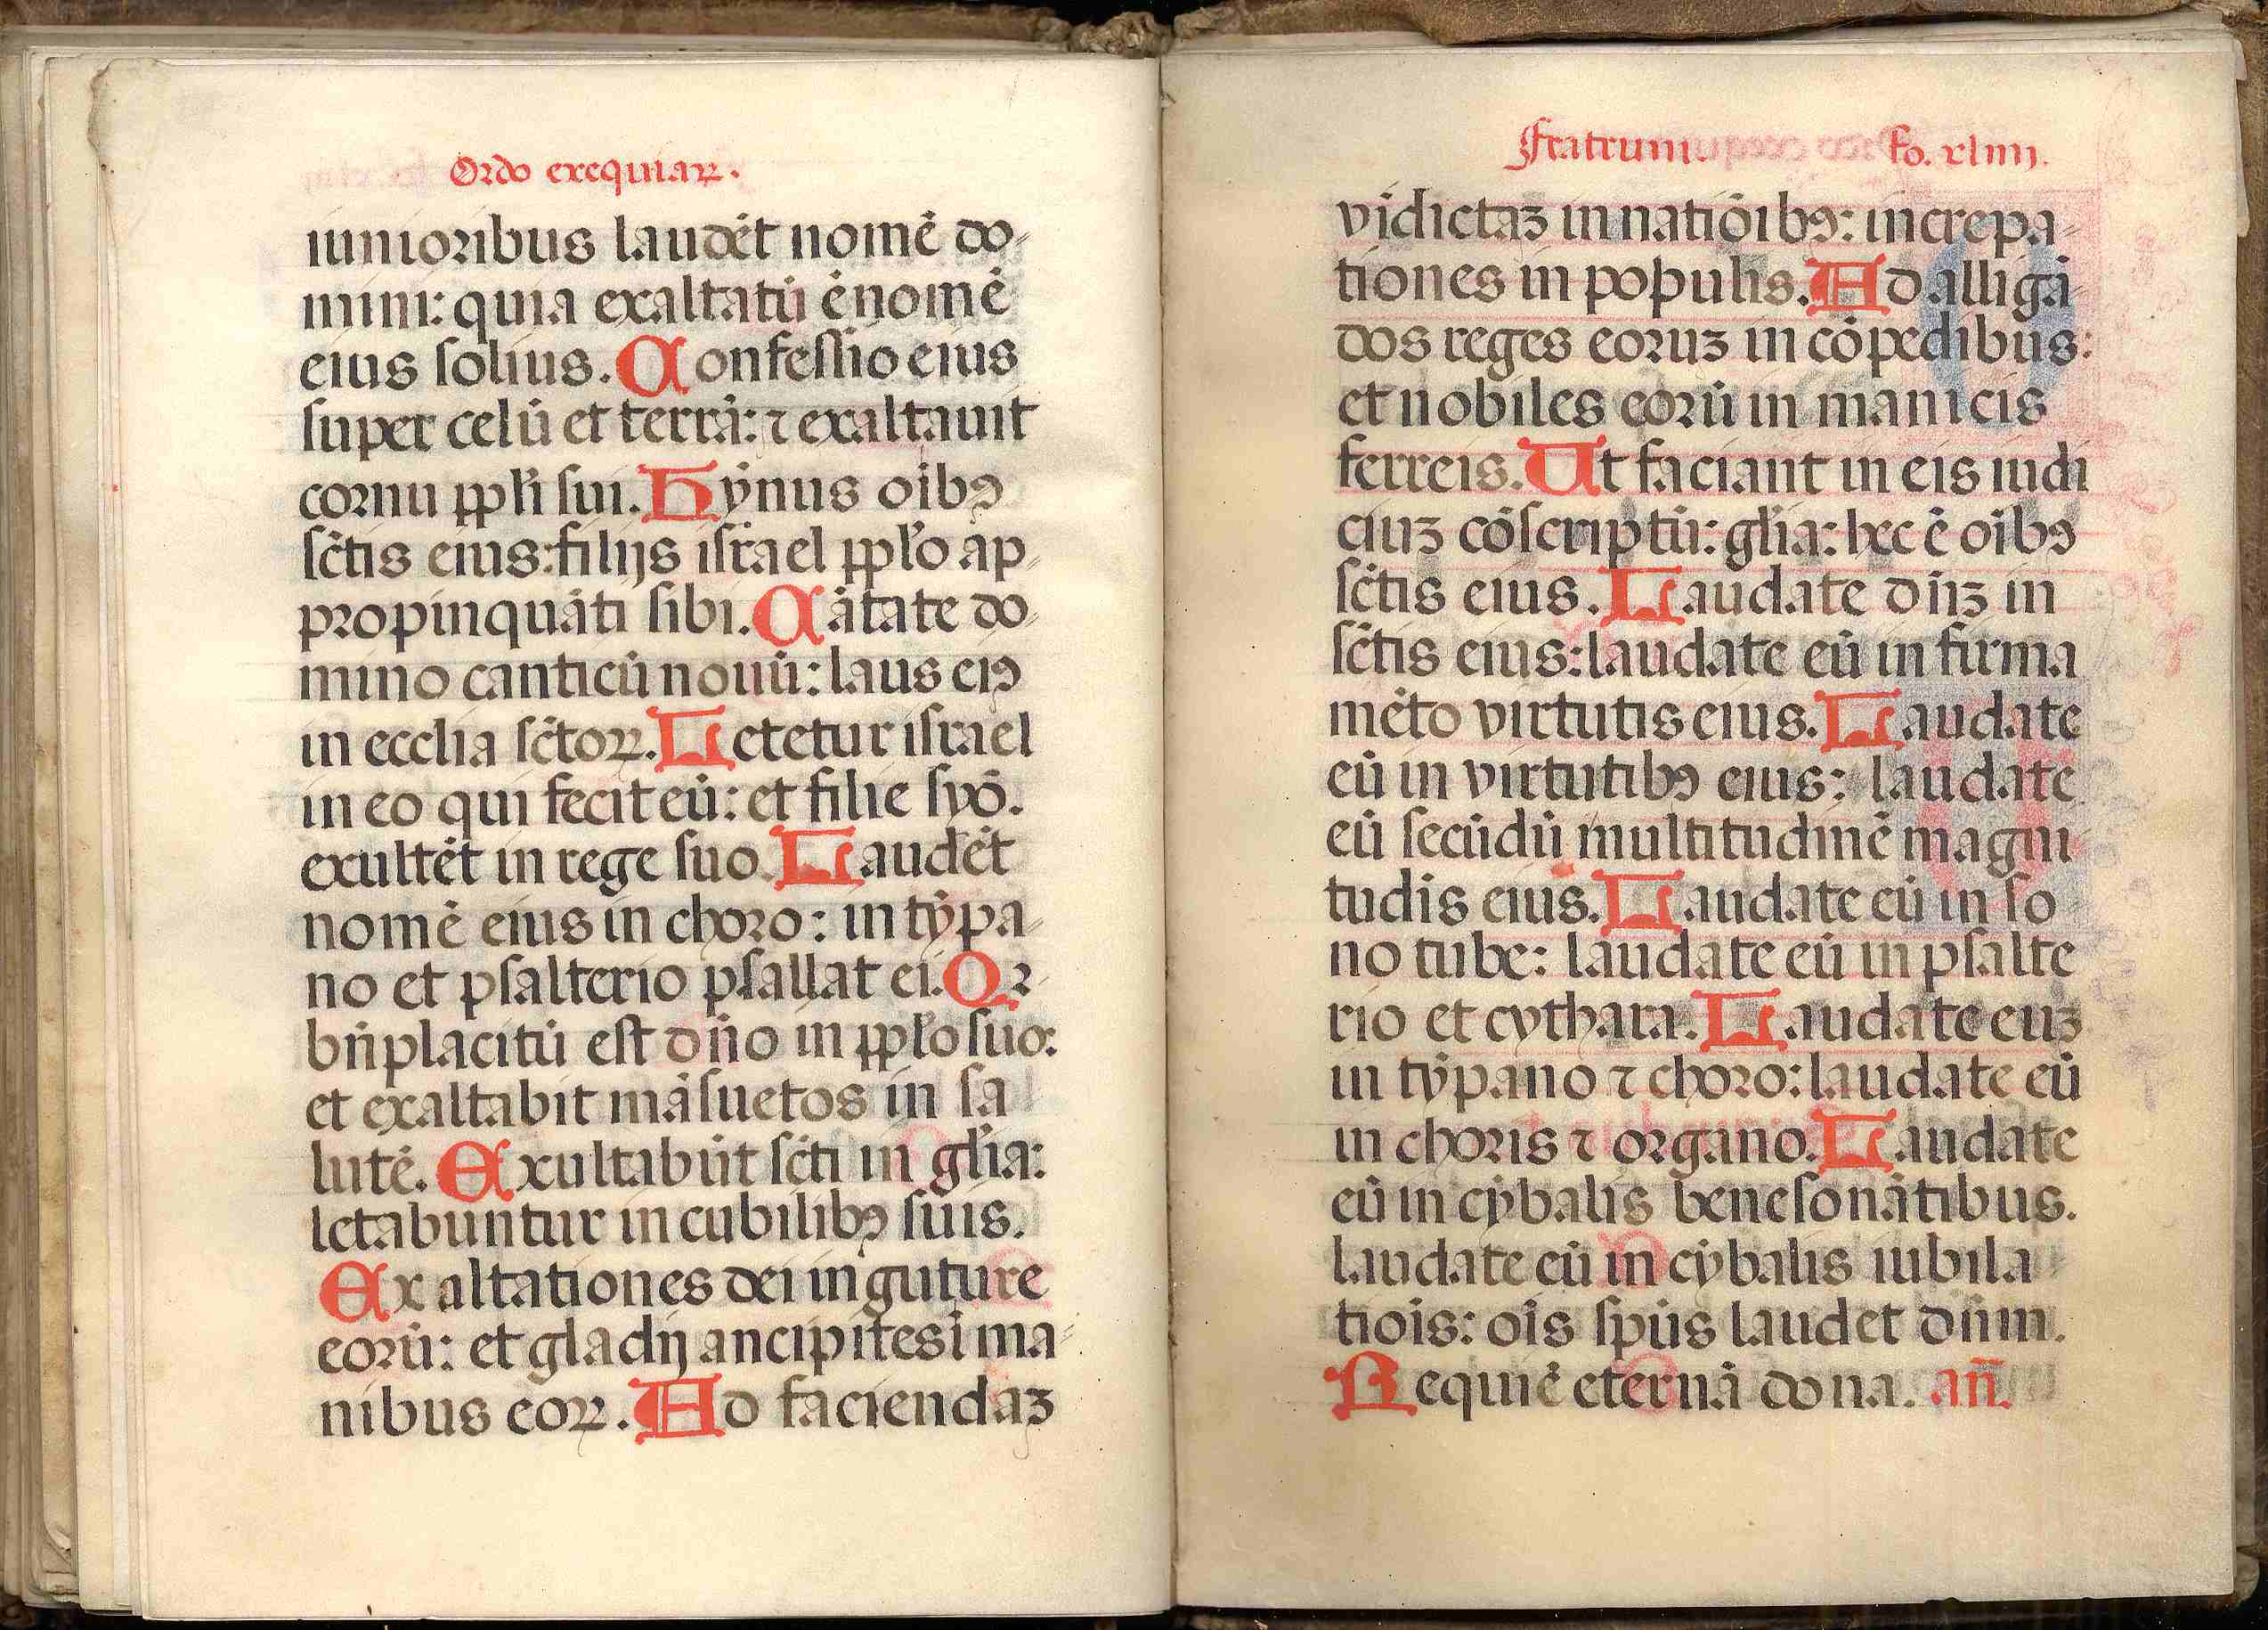 Ordo exequiaꝝ.
iunioribus laudēt nomē do-
mini: quia exaltatū ē nomē
eius ſolius. Confeſſio eius
ſuper celū et terrā: ⁊ exaltauit
cornu ppl̄i ſui. Hȳnus oībꝰ
ſc̄tis eius: filijs iſrael ppl̄o ap-
propinquāti ſibi. Cātate do-
mino canticū nouū: laus eiꝰ
in eccl̄ia ſc̄toꝝ. Letetur iſrael
in eo qui fecit eū: et filie ſyō.
exultēt in rege ſuo. Laudēt
nomē eius in choro: in tȳpa-
no et pſalterio pſallat ei. Qꝛ
bn̄placitū eſt dn̄o in ppl̄o ſuo:
et exaltabit māſuetos in ſa
lutē. Exultabūt ſc̄ti in gl̄ia:
letabuntur in cubilibꝰ ſuis.
Exaltationes dei in guture
eorū: et gladij ancipites ī ma-
nibus eoꝝ. Ad faciendaʒ
Fratrum. fo. xliiij.
vīdictaʒ in natiōibꝰ: increpa-
tiones in populis. Ad alligā-
dos reges eoruʒ in cōpedibus:
et nobiles eorū in manicis
ferreis. Ut faciant in eis iudi
ciuʒ cōſcriptū: gl̄ia: hec ē oībꝰ
ſc̄tis eius. Laudate dn̄ʒ in
ſc̄tis eius: laudate eū in firma
mēto virtutis eius. Laudate
eū in virtutibꝰ eius: laudate
eū ſecūdū multitudinē magni-
tudis eius. Laudate eū in ſo
no tube: laudate eū in pſalte
rio et cythara. Laudate euʒ
in tȳpano ⁊ choro: laudate eū
in choris ⁊ organo. Laudate
eū in cȳbalis beneſonātibus.
laudate eū in cȳbalis iubila
tiōis: oīs ſpūs laudet dn̄m.
Requiē eternā dona. an̄.